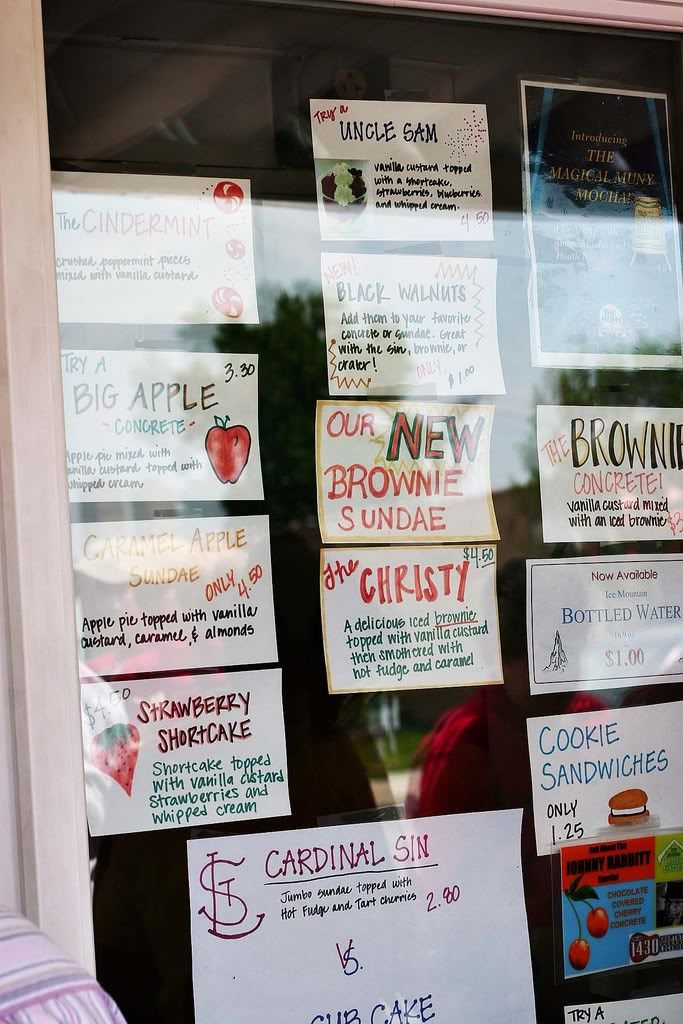 The CINDERMINT
crushed peppermint pieces
mixed with vanilla custard
TRY A 3.30
BIG APPLE
- CONCRETE -
Apple pie mixed with
vanilla custard topped with
whipped cream
CARAMEL APPLE
SUNDAE
ONLY 4.50
Apple pie topped with vanilla
custard, caramel, & almonds
$4.50
STRAWBERRY
SHORTCAKE
Shortcake topped
with vanilla custard
strawberries and
whipped cream
TRY a
UNCLE SAM
vanilla custard topped
with a shortcake,
strawberries, blueberries
and whipped cream.
4.50
NEW!
BLACK WALNUTS
Add them to your favorite
concrete or sundae. Great
with the sin, brownie, or
crater!
ONLY
$1.00
OUR NEW
BROWNIE
SUNDAE
$4.50
the CHRISTY
A delicious iced brownie
topped with vanilla custard
then smothered with
hot fudge and caramel
STL CARDINAL SIN
Jumbo sundae topped with
Hot Fudge and Tart cherries 2.80
VS.
CUB CAKE
Introducing
THE
MAGICAL MUNY
MOCHA!
THE BROWNIE
CONCRETE!
vanilla custard mixed
with an iced brownie
Now Available
Ice Mountain
BOTTLED WATER
16.9 oz
$1.00
COOKIE
SANDWICHES
ONLY
1.25
Ask About The
JOHNNY RABBITT
Special
CHOCOLATE
COVERED
CHERRY
CONCRETE
1430
TRY A